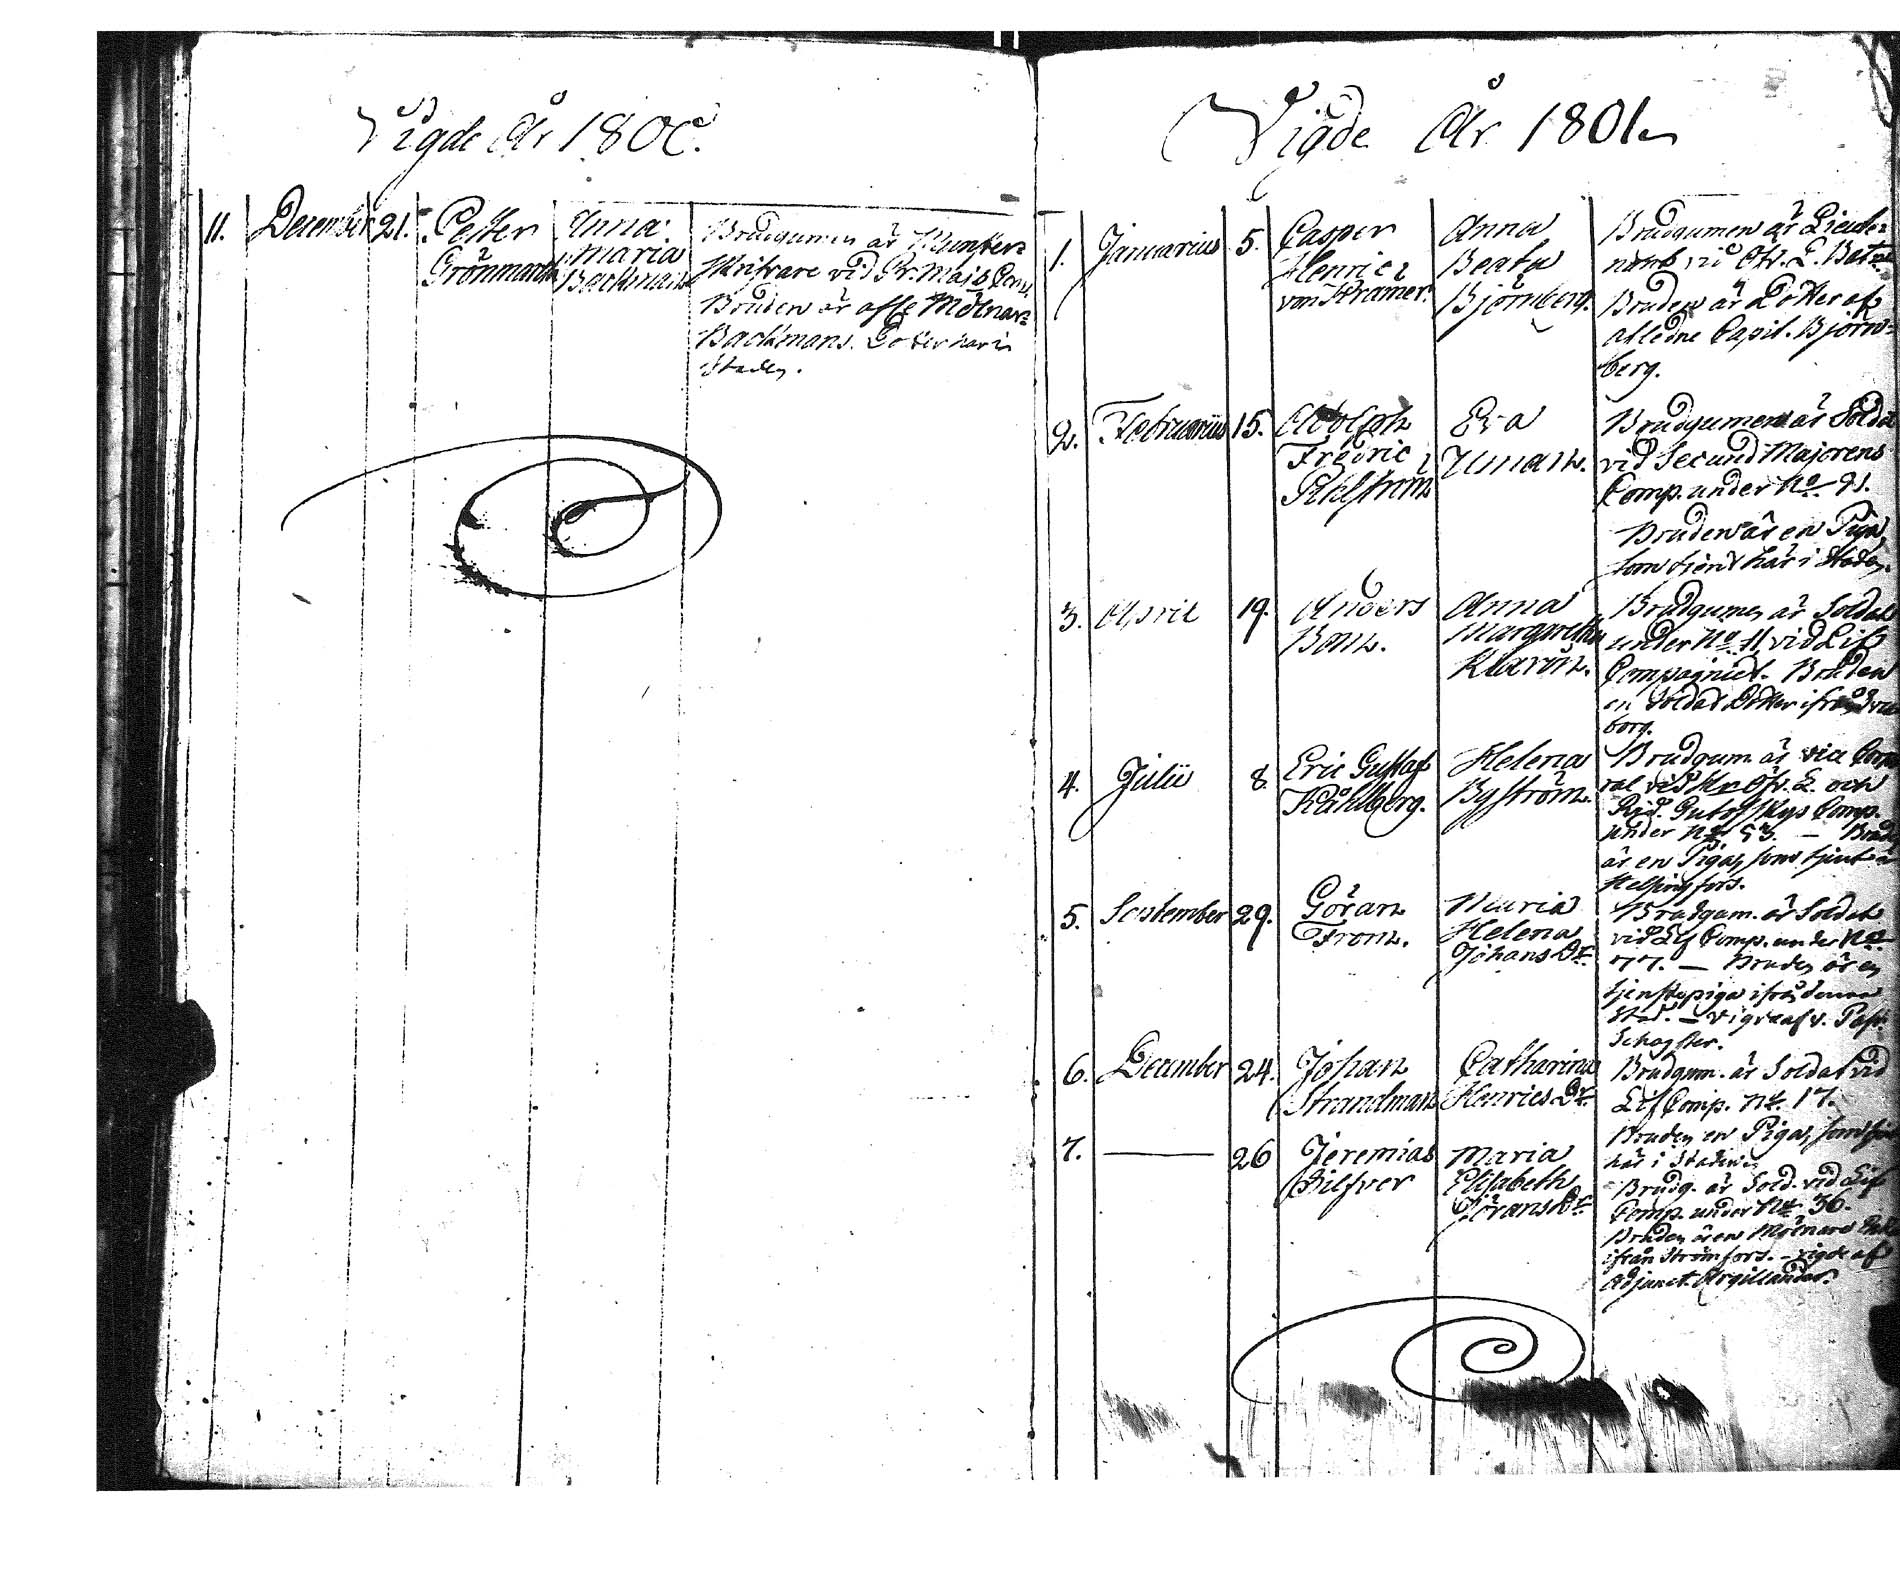 Vigde År 1800.
11. December 21. Petter Grönmarck Anna Maria Backman
Brudgumen är Munster-
skrifvare vid Pr. Majs Comp.
Bruden är afl. Mölnar-
Backmans Dotter här i
Staden.
Vigde År 1801
1. Januarius 5. Casper Henric von Kræmer. Anna Beata Björnberg.
Brudgumen är Lieute-
nant vid Öfv. L. Bat.
Bruden är Dotter af
afledne Capit. Björn-
berg.
2. Februarius 15. Adolph Fredric Pihlström Eva Uman.
Brudgumen är Soldat
vid Secund Majorens
Comp. under No 91.
Bruden är en Piga,
som tjent här i Staden.
3. April 19. Anders Bom. Anna Margaretha Klarön.
Brudgumen är Soldat
under No 11 vid Lif
Compagniet. Bruden
en Soldat Dotter ifrån
borg.
4. Julii 8. Eric Gustaf Ståhlberg. Helena Byström.
Brudgum. är vice Corpo
ral vid Hr Öfv. L. och
Rid. Gutofskys Comp.
under No 53. — Bruden
är en Piga, som tjent i
Helsingfors.
5. September 29. Göran From. Maria Helena Johans Dr.
Brudgum. är Soldat
vid Lif Comp. under No
77. — Bruden är en
tjenstepiga ifrån denna
Stad. — Vigde af v. Past.
6. December 24. Johan Strandman Catharina Henrics Dr.
Brudgum. är Soldat vid
Lif Comp. No 17.
Bruden en Piga, som
här i Staden.
7. — 26 Jeremias Silfver Maria Elisabeth Görans Dr.
Brudg. är Sold. vid Lif
Comp. under No 36.
Bruden är en Mölnare
ifrån Strömfors. — vigde af
Adjunct. Argillander.